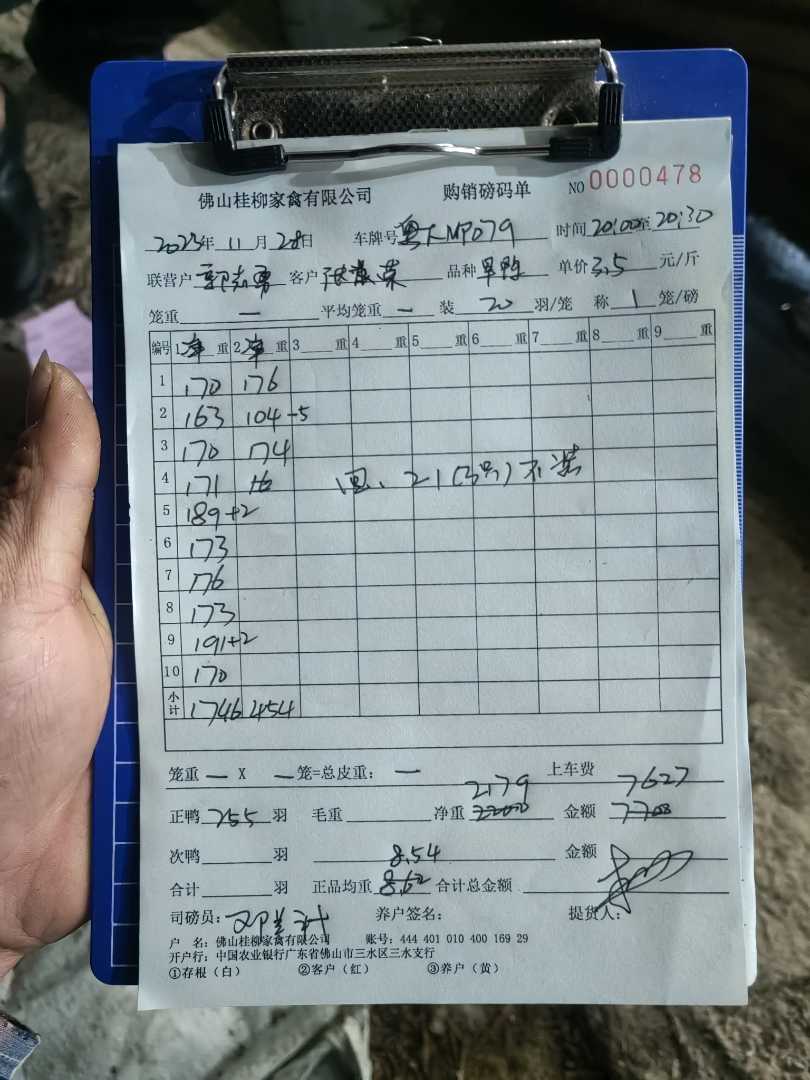 佛山桂柳家禽有限公司 购销磅码单 NO 0000478
2023年 11月 28日 车牌号 粤 MP079 时间 20:00至 20:30
联营户 郭志勇 客户 品种 旱鸭 单价 3.5 元/斤
笼重 — 平均笼重 — 装 20 羽/笼 称 1 笼/磅
编号 1 净重 2 净重 3 重 4 重 5 重 6 重 7 重 8 重 9 重
1 170 176
2 163 104-5
3 170 174
4 171 回、21(3号)不装
5 189+2
6 173
7 176
8 173
9 191+2
10 170
小计 1746 454
笼重 — X — 笼=总皮重: — 2179 上车费 7627
正鸭 255 羽 毛重 净重 金额
次鸭 羽 8.54 金额
合计 羽 正品均重 8.62 合计总金额
司磅员: 养户签名: 提货人:
户 名: 佛山桂柳家禽有限公司 账号: 444 401 010 400 169 29
开户行: 中国农业银行广东省佛山市三水区三水支行
①存根(白) ②客户(红) ③养户(黄)